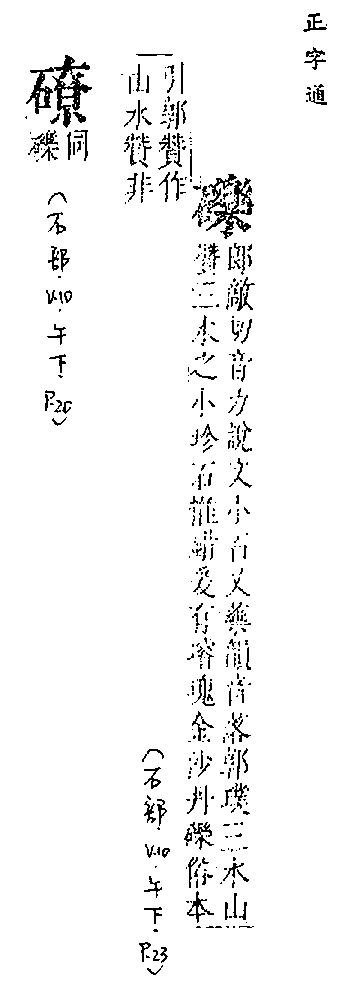 正字通
礫
郎敵切音力說文小石又藥韻音落郭璞三水山
贊三水之小珍石惟錯爰有璿瑰金沙丹礫俗本
引郭贊作
山水贊非
(石部·V.10·午下·P.23)
同
礫
(石部·V.10·午下·P.20)